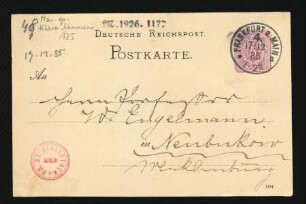 Mus. ep.
Klara Schumann
125
17.12.85
DK. 1976. 1177
DEUTSCHE REICHSPOST.
POSTKARTE.
FRANKFURT a. MAIN
4
17/12
85
7-8N
An
Herrn Professor
W. Engelmann
in Neubukow
Mecklenburg